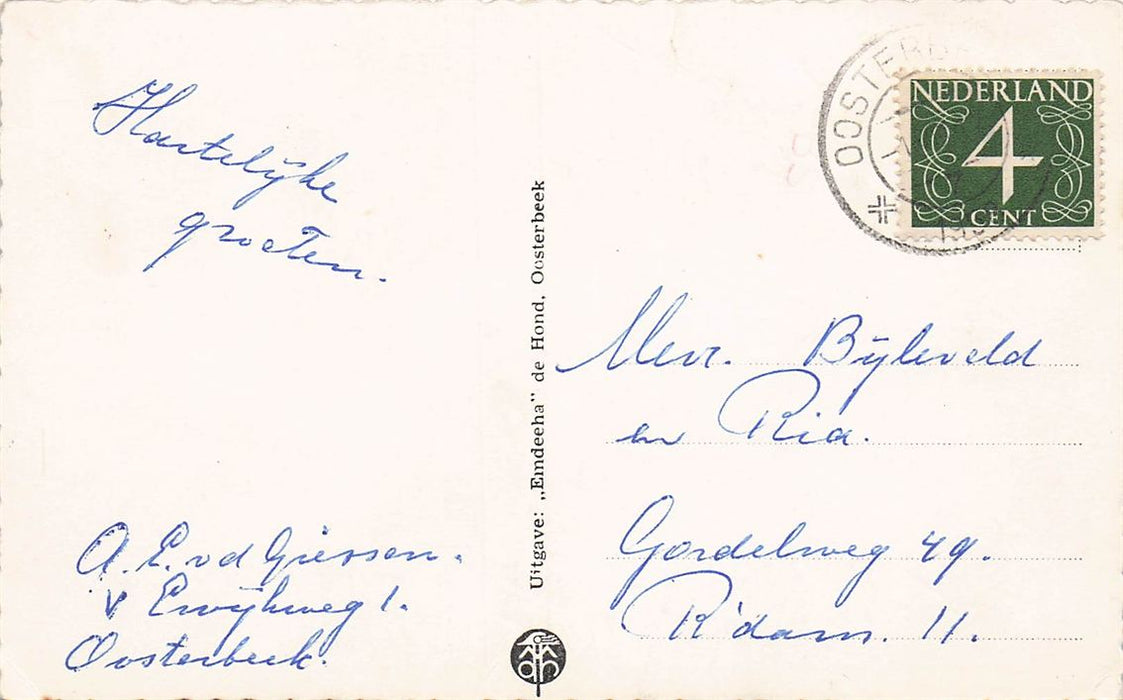 Hartelijke
groeten.
A. E. v d Giessen.
v Ewijkweg 1.
Oosterbeek.
Uitgave: „Emdeeha” de Hond, Oosterbeek
NEDERLAND
4
CENT
Mevr. Bijleveld
en Ria.
Gordelweg 49.
R'dam. 11.